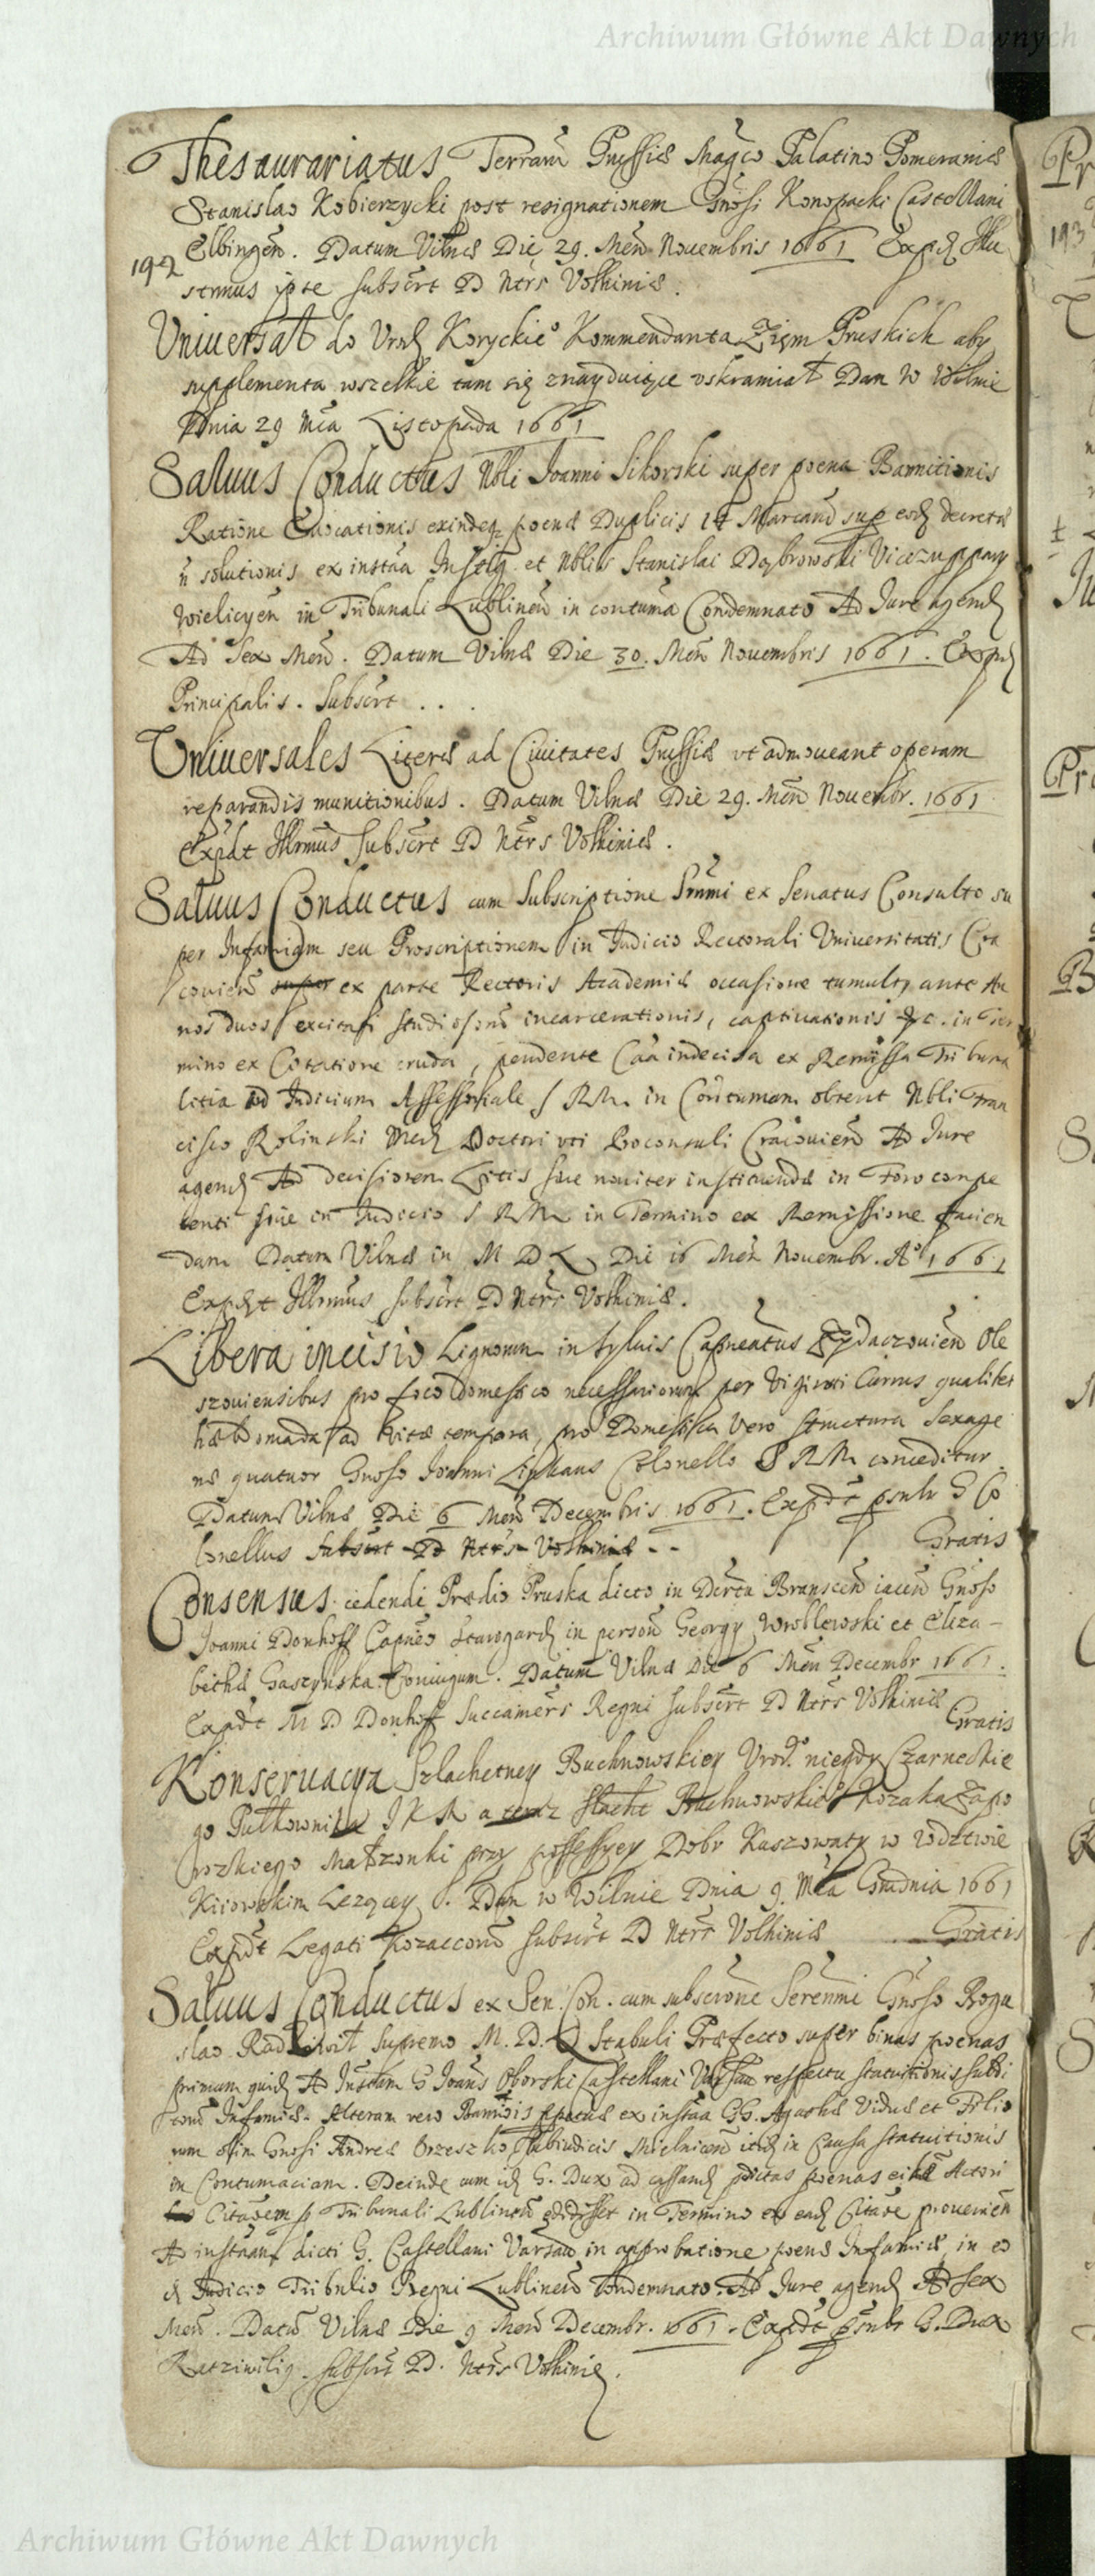 Archiwum Główne Akt Dawnych
Thesaurariatus Terraru Prussiæ Magco Palatino Pomeraniæ
Stanislao Kobierzycki post resignationem Gnosi Konopacki Castellani
Elbingen. Datum Vilnæ Die 29. Men Nouembris 1661 Expd Illu
192
strmus ipse subscrt D Ntrs Volhiniæ.
Uniuersał do Urod Koryckiego Kommendanta Ziem Pruskich aby
supplementa wszelkie tam się znayduiące uskramiał Dan w Wilnie
Dnia 29 Mca Listopada 1661
Saluus Conductus Nbli Joanni Sikorski super poena Bannitionis
Ratione Euocationis exindeq poenæ Duplicis 14 Marcaru sup eosd decretæ
n solutionis ex instaa Instig et Nblis Stanislai Dąbrowski Vicezuppary
Wielicyen in Tribunali Lublinen in contuma Condemnato Ad Jure agend
Ad Sex Men. Datum Vilnæ Die 30. Men Nouembris 1661. Expd
Principalis. Subscrt . . .
Uniuersales Literæ ad Ciuitates Prussiæ ut admoueant operam
reparandis munitionibus. Datum Vilnæ Die 29. Men Nouembr. 1661
Expdt Illrmus Subscrt D Ntrs Volhiniæ.
Saluus Conductus cum Subscriptione Srmi ex Senatus Consulto su
per Infamiam seu Proscriptionem in Judicio Rectorali Uniuersitatis Cra
couien super ex parte Rectoris Academiæ occasione tumulty ante An
nos duos excitati studiosoru incarcerationis, captiuationis &c. in Ter
mino ex Citatione cruda, pendente Caa indecisa ex Remissa Tribuna
litia ad Judicium Assessoriale S RM in Contumam obtent Nbli Fran
cisco Rolinski Med Doctori uti Proconsuli Cracouien Ad Jure
agend Ad decisionem Litis siue nouiter instituendæ in Foro conpe
tenti siue in Judicio S RM in Termino ex Remissione facien
dam Datum Vilnæ in M D L Die 16 Men Nouembr. Ao 1661
Expdt Illrmus subscrt D Ntrs Volhiniæ.
Libera incisio Lignorum in syluis Capneatus Zydaczouien Ole
szouiensibus pro foco domestico necessariorum per Viginti Currus qualibet
hebdomada ad vitæ tempora, pro Domestica vero structura Sexage
ne quatuor Gnoso Joanni Liphaus Colonello S RM conceditur.
Datum Vilnæ Die 6 Men Decembris 1661. Expdt psnlr G Co
lonellus Subscrt D Ntrs Volhiniæ - - Gratis
Consensus cedendi Prædio Pruska dicto in Derta Branscen iacen Gnoso
Joanni Donhoff Capneo Starogard in person Georgy Wroblewski et Eliza-
bethæ Gaszynska Coniugum. Datum Vilnæ Die 6 Men Decembr 1661.
Expdt M D Donhoff Succamers Regni subscrt D Ntrs Volhiniæ Gratis
Konseruacya Szlachetney Buchnowskiey Urodo niegdy Czarneckie
go Pułkownika JKM a teraz Slache Buchnowskie Kozaka Zapo
rozkiego Małzonki przy possessyey Dobr Kuszowaty w wdztwie
Kiiowskim Lezącey. Dan w Wilnie Dnia 9. Mca Grudnia 1661
Expdt Legati Kozaccoru subscrt D Ntrs Volhiniæ Gratis
Saluus Conductus ex Sen: Con. cum subscrone Serenmi Gnoso Bogu
slao Radziwił Supremo M. D. L Stabuli Præfecto super binas poenas
primam quid Ad Instam G Joans Oborski Castellani Varsau respectu statuitionis subdi
toru Infamiæ. Alteram vero Bannois ex instaa GG. Agathæ Viduæ et Filio
rum olim Gnosi Andreæ Orzeszko Subiudicis Mielnicen itid in Causa statuitionis
in Contumaciam. Deinde cum id G. Dux ad cassand pdictas poenas Actori
bus Citaoem p Tribunali Lublinen edidisset in Termino ex ead Citaoe prouenien
Ad instaam dicti G. Castellani Varsau in approbatione poenæ Infamiæ in eo
d Judicio Tribnlio Regni Lublinen Condemnato. Ad Jure agend Ad sex
Men. Datu Vilnæ Die 9 Men Decembr. 1661. Expdt psnlr G. Dux
Radziwilig subscrt D. Ntrs Volhiniæ.
Archiwum Główne Akt Dawnych